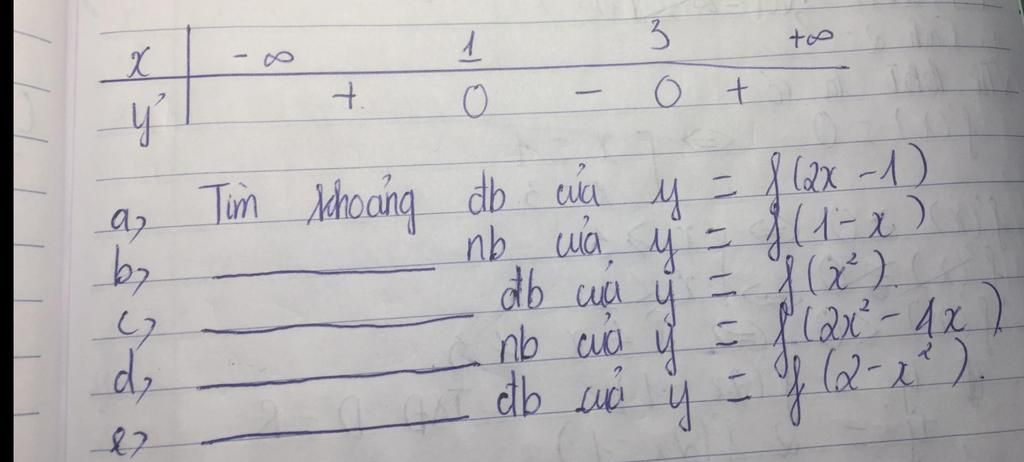 x | -∞ 1 3 +∞
y' | + 0 - 0 +
a, Tìm khoảng đb của y = f(2x - 1)
b, nb của y = f(1 - x)
c, đb của y = f(x²)
d, nb của y = f(2x² - 4x)
e, đb của y = f(2 - x²).